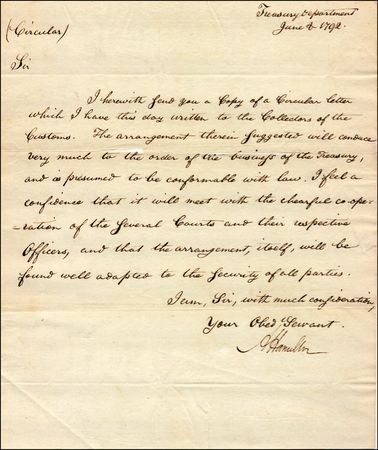 Treasury Department
(Circular)
June 8 1792.
Sir
I herewith send you a Copy of a Circular letter
which I have this day written to the Collectors of the
Customs. The arrangement therein suggested will conduce
very much to the order of the business of the Treasury,
and is presumed to be conformable with law. I feel a
confidence that it will meet with the chearful co-ope-
=ration of the several Courts and their respective
Officers, and that the arrangement, itself, will be
found well adapted to the Security of all parties.
I am, Sir, with much consideration,
Your Obed.t Servant.
A Hamilton